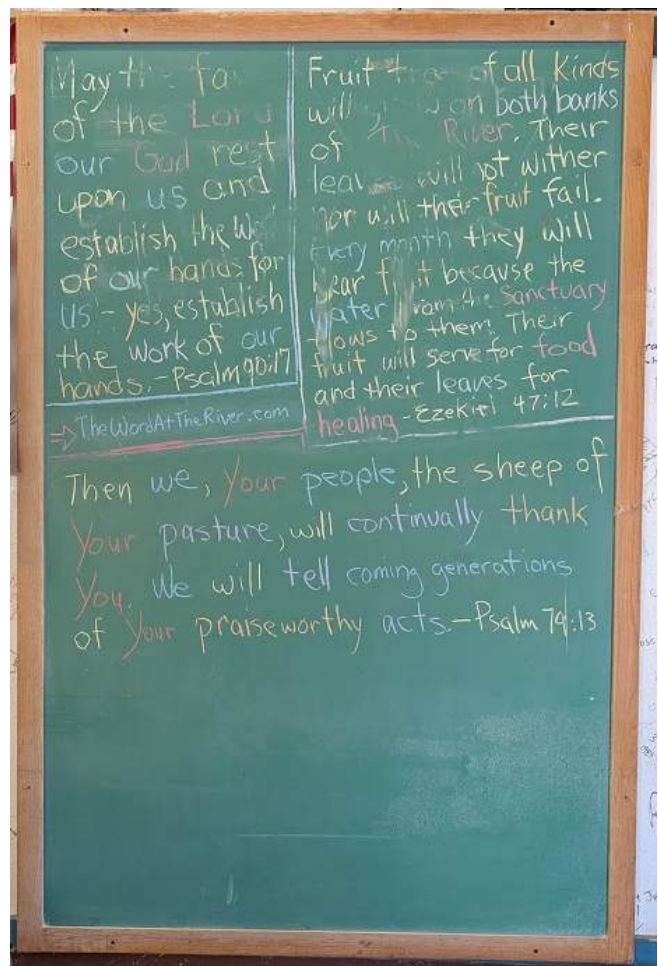 May the fa
of the Lord
our God rest
upon us and
establish the
of our hands for
us - yes, establish
the work of our
hands. - Psalm 90:17
→ TheWordAtTheRiver.com
Fruit of all kinds
will on both banks
of The River. Their
will not wither
nor will their fruit fail.
Every month they will
bear fruit because the
water from the Sanctuary
flows to them. Their
fruit will serve for food
and their leaves for
healing - Ezekiel 47:12
Then we, Your people, the sheep of
Your pasture, will continually thank
You. We will tell coming generations
of Your praiseworthy acts. - Psalm 79:13